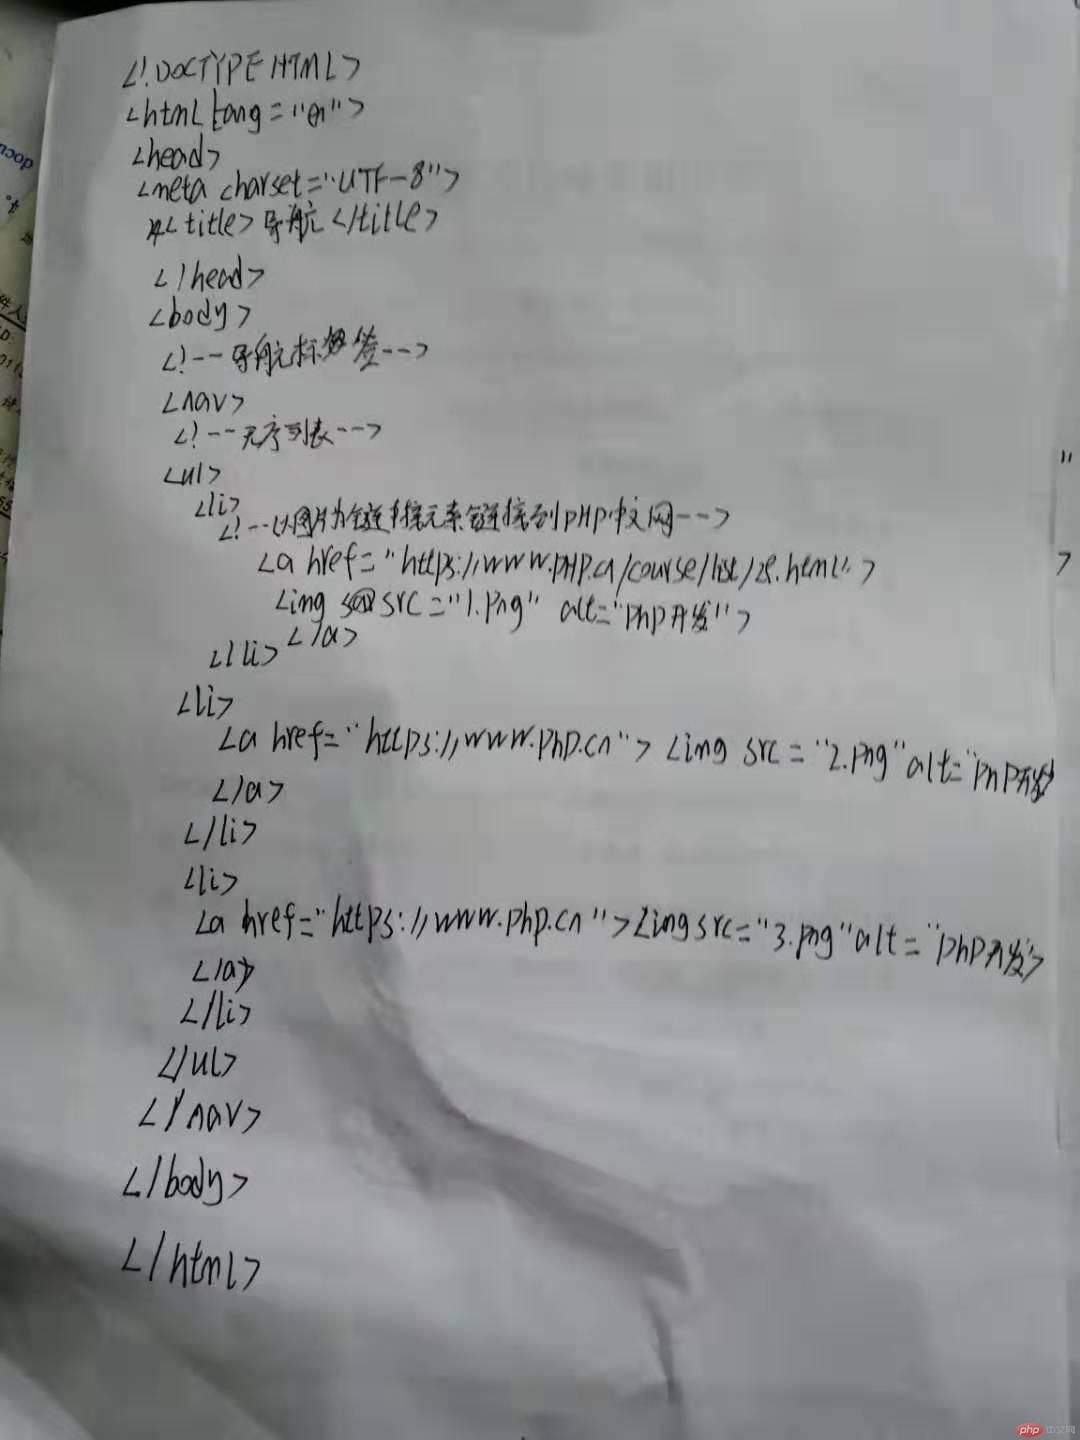 <!DOCTYPE HTML>
<html lang="en">
<head>
<meta charset="UTF-8">
<title>导航</title>
</head>
<body>
<!--导航标签-->
<nav>
<!--无序列表-->
<ul>
<li>
<!--以图片为链接元素链接到PHP中文网-->
<a href="https://www.PHP.cn/course/list/28.html">
<img src="1.png" alt="php开发">
</a>
</li>
<li>
<a href="https://www.php.cn"> <img src="2.png" alt="php开发"
>
</a>
</li>
<li>
<a href="https://www.php.cn"><img src="3.png" alt="php开发">
</a>
</li>
</ul>
</nav>
</body>
</html>
php 中文网